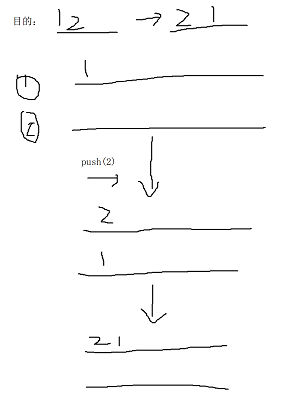 目的： 12 → 21
① 1
②
push(2)
2
1
21